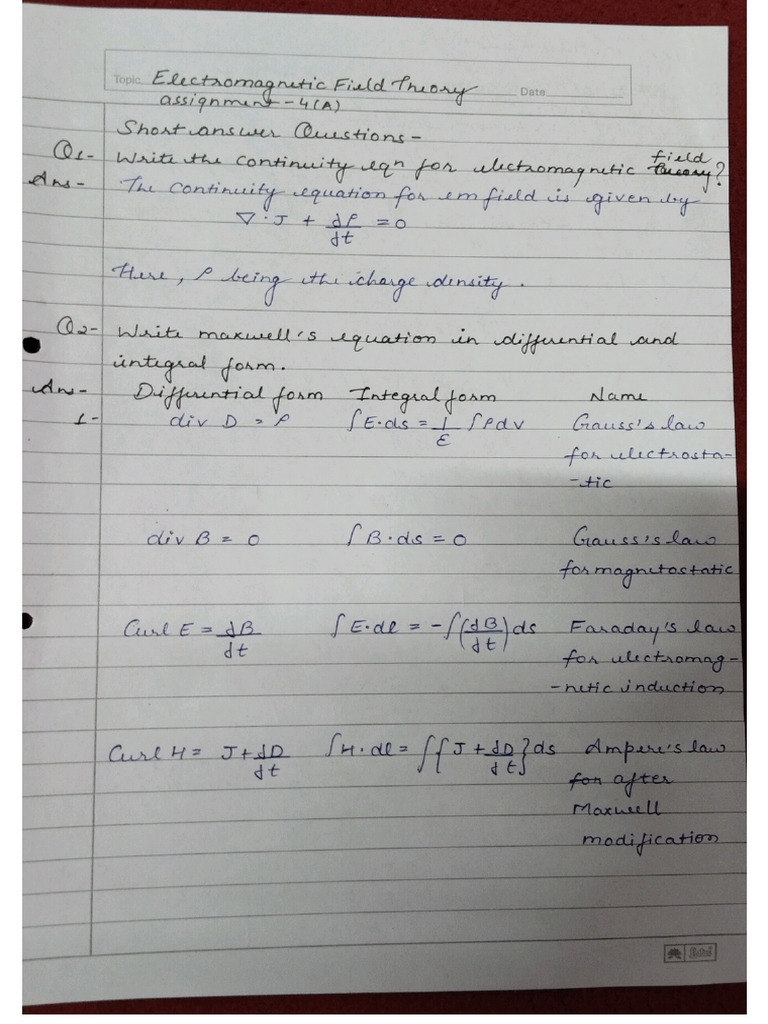 Topic Electromagnetic Field Theory Date
assignment - 4(A)
Short answer Questions -
field
Q1- Write the continuity eqn for electromagnetic theory?
Ans- The continuity equation for em field is given by
∇·J + dρ/dt = 0
Here, ρ being the charge density.
Q2- Write maxwell's equation in differential and
integral form.
Ans- Differential form Integral form Name
1- div D = ρ ∫E·ds = 1/ε ∫ρdv Gauss's law
for electrosta-
-tic
div B = 0 ∫B·ds = 0 Gauss's law
for magnetostatic
Curl E = dB/dt ∫E·dl = -∫(dB/dt)ds Faraday's law
for electromag-
-netic induction
Curl H = J + dD/dt ∫H·dl = ∫{J + dD/dt}ds Ampere's law
for after
Maxwell
modification